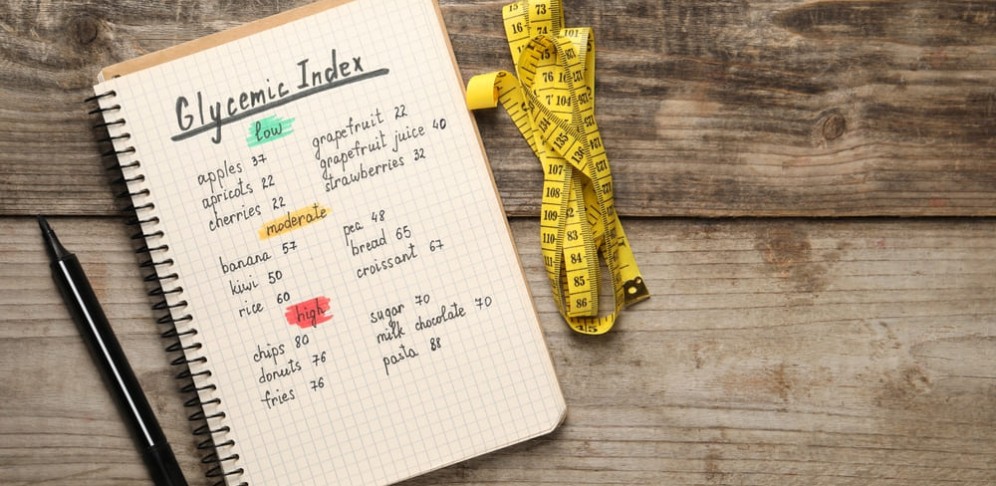 Glycemic Index
low
apples 37
apricots 22
cherries 22
grapefruit 22
grapefruit juice 40
strawberries 32
moderate
banana 57
kiwi 50
rice 60
pea 48
bread 65
croissant 67
high
chips 80
donuts 76
fries 76
sugar 70
milk chocolate 70
pasta 88
73
16
101
76
104
136
107
108
109
110
83
84
85
86